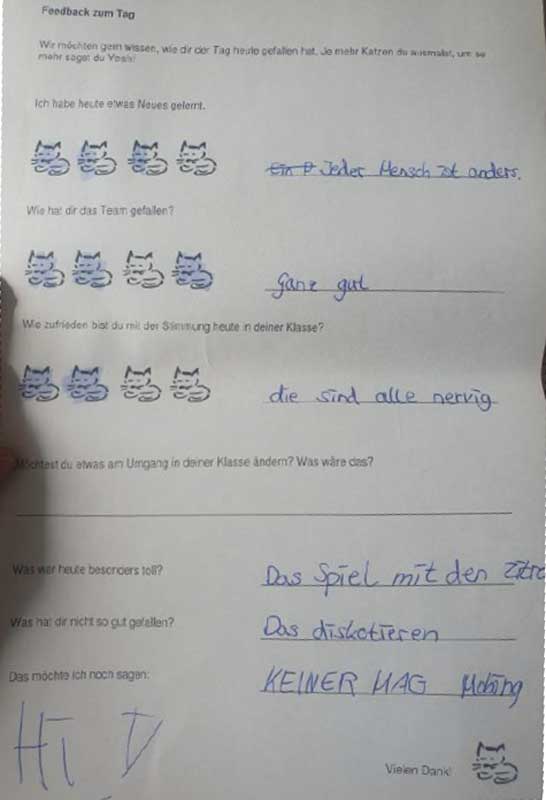 Feedback zum Tag
Wir möchten gern wissen, wie dir der Tag heute gefallen hat. Je mehr Katzen du ausmalst, um so
mehr sagst du
Ich habe heute etwas Neues gelernt.
Jeder Mensch ist anders.
Wie hat dir das Team gefallen?
ganz gut
Wie zufrieden bist du mit der Stimmung heute in deiner Klasse?
die sind alle nervig
Möchtest du etwas am Umgang in deiner Klasse ändern? Was wäre das?
Was war heute besonders toll?
Das Spiel mit den Zitro
Was hat dir nicht so gut gefallen?
Das diskotieren
Das möchte ich noch sagen:
KEINER MAG Mobing
Hi
Vielen Dank!